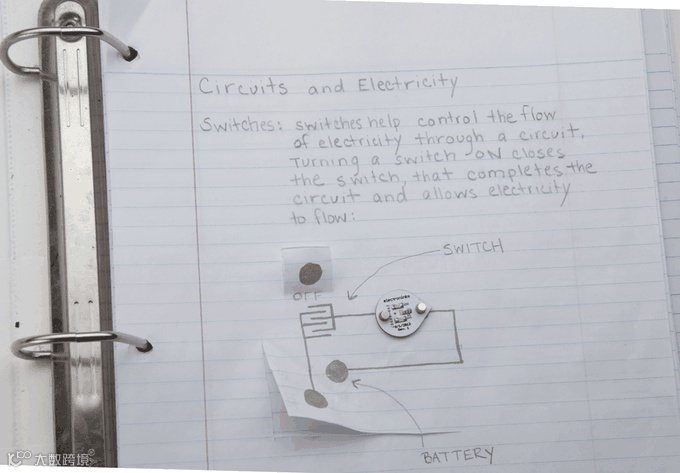 Circuits and Electricity
Switches: switches help control the flow
of electricity through a circuit.
Turning a switch ON closes
the switch, that completes the
circuit and allows electricity
to flow:
SWITCH
OFF
electroninks
BATTERY
大数跨境